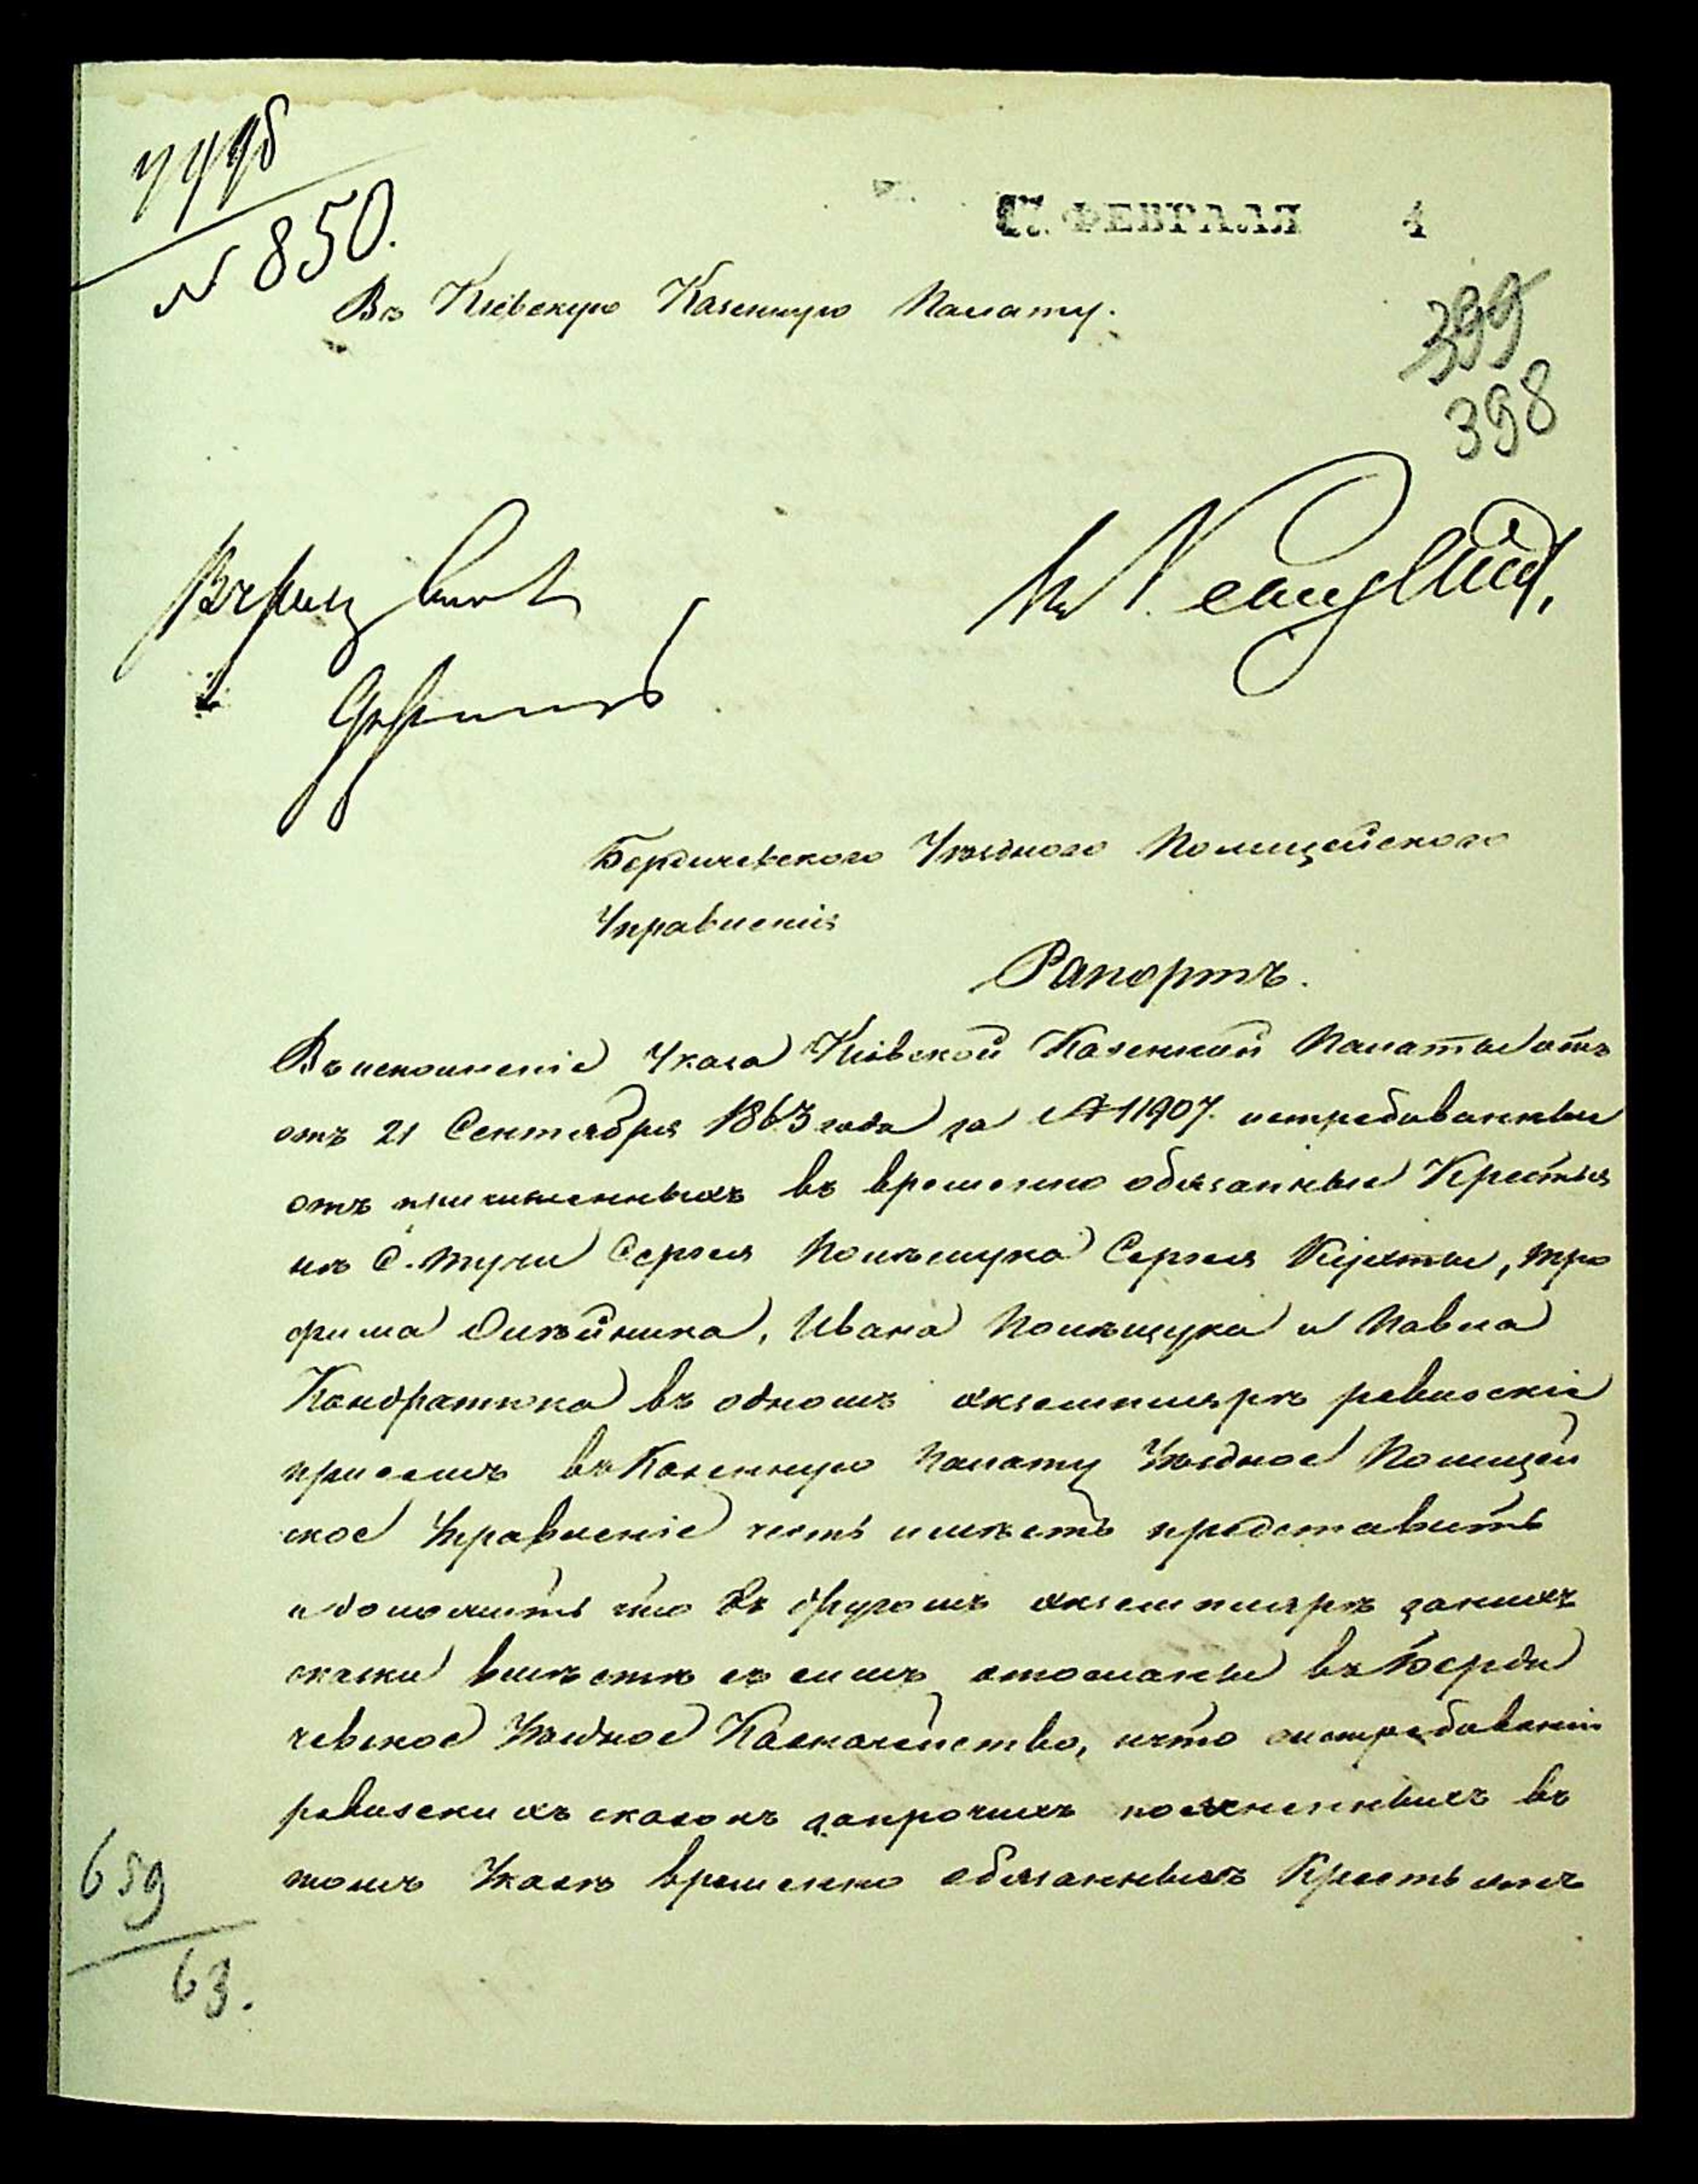 7498
№ 850.
ФЕВРАЛЯ 4
Въ Кіевскую Казенную Палату.
399
398
Бердичевского Уѣздного Полицейского
Управленія
Рапортъ.
Въ исполненіе Указа Кіевской Казенной Палаты отъ
отъ 21 Сентября 1863 года за № 11907. истребованные
отъ причисленныхъ въ временно обязанные Крестья
нъ С. Тучи Сергея Полѣщука Сергея Тро
фима Олѣйника, Ивана Полѣщука и Павла
Кондратюка въ одномъ экземплярѣ ревизскіе
при семъ въ Казенную Палату Уѣздное Полицей
ское Управленіе честь имѣетъ представить
и дополнить что въ другомъ экземплярѣ
сказки вмѣстѣ съ симъ отосланы въ Берди
чевское Уѣздное Казначейство, и что истребованіи
ревизскихъ сказокъ за прочихъ поясненныхъ въ
томъ Указѣ временно обязанныхъ Крестьянъ
659
63.